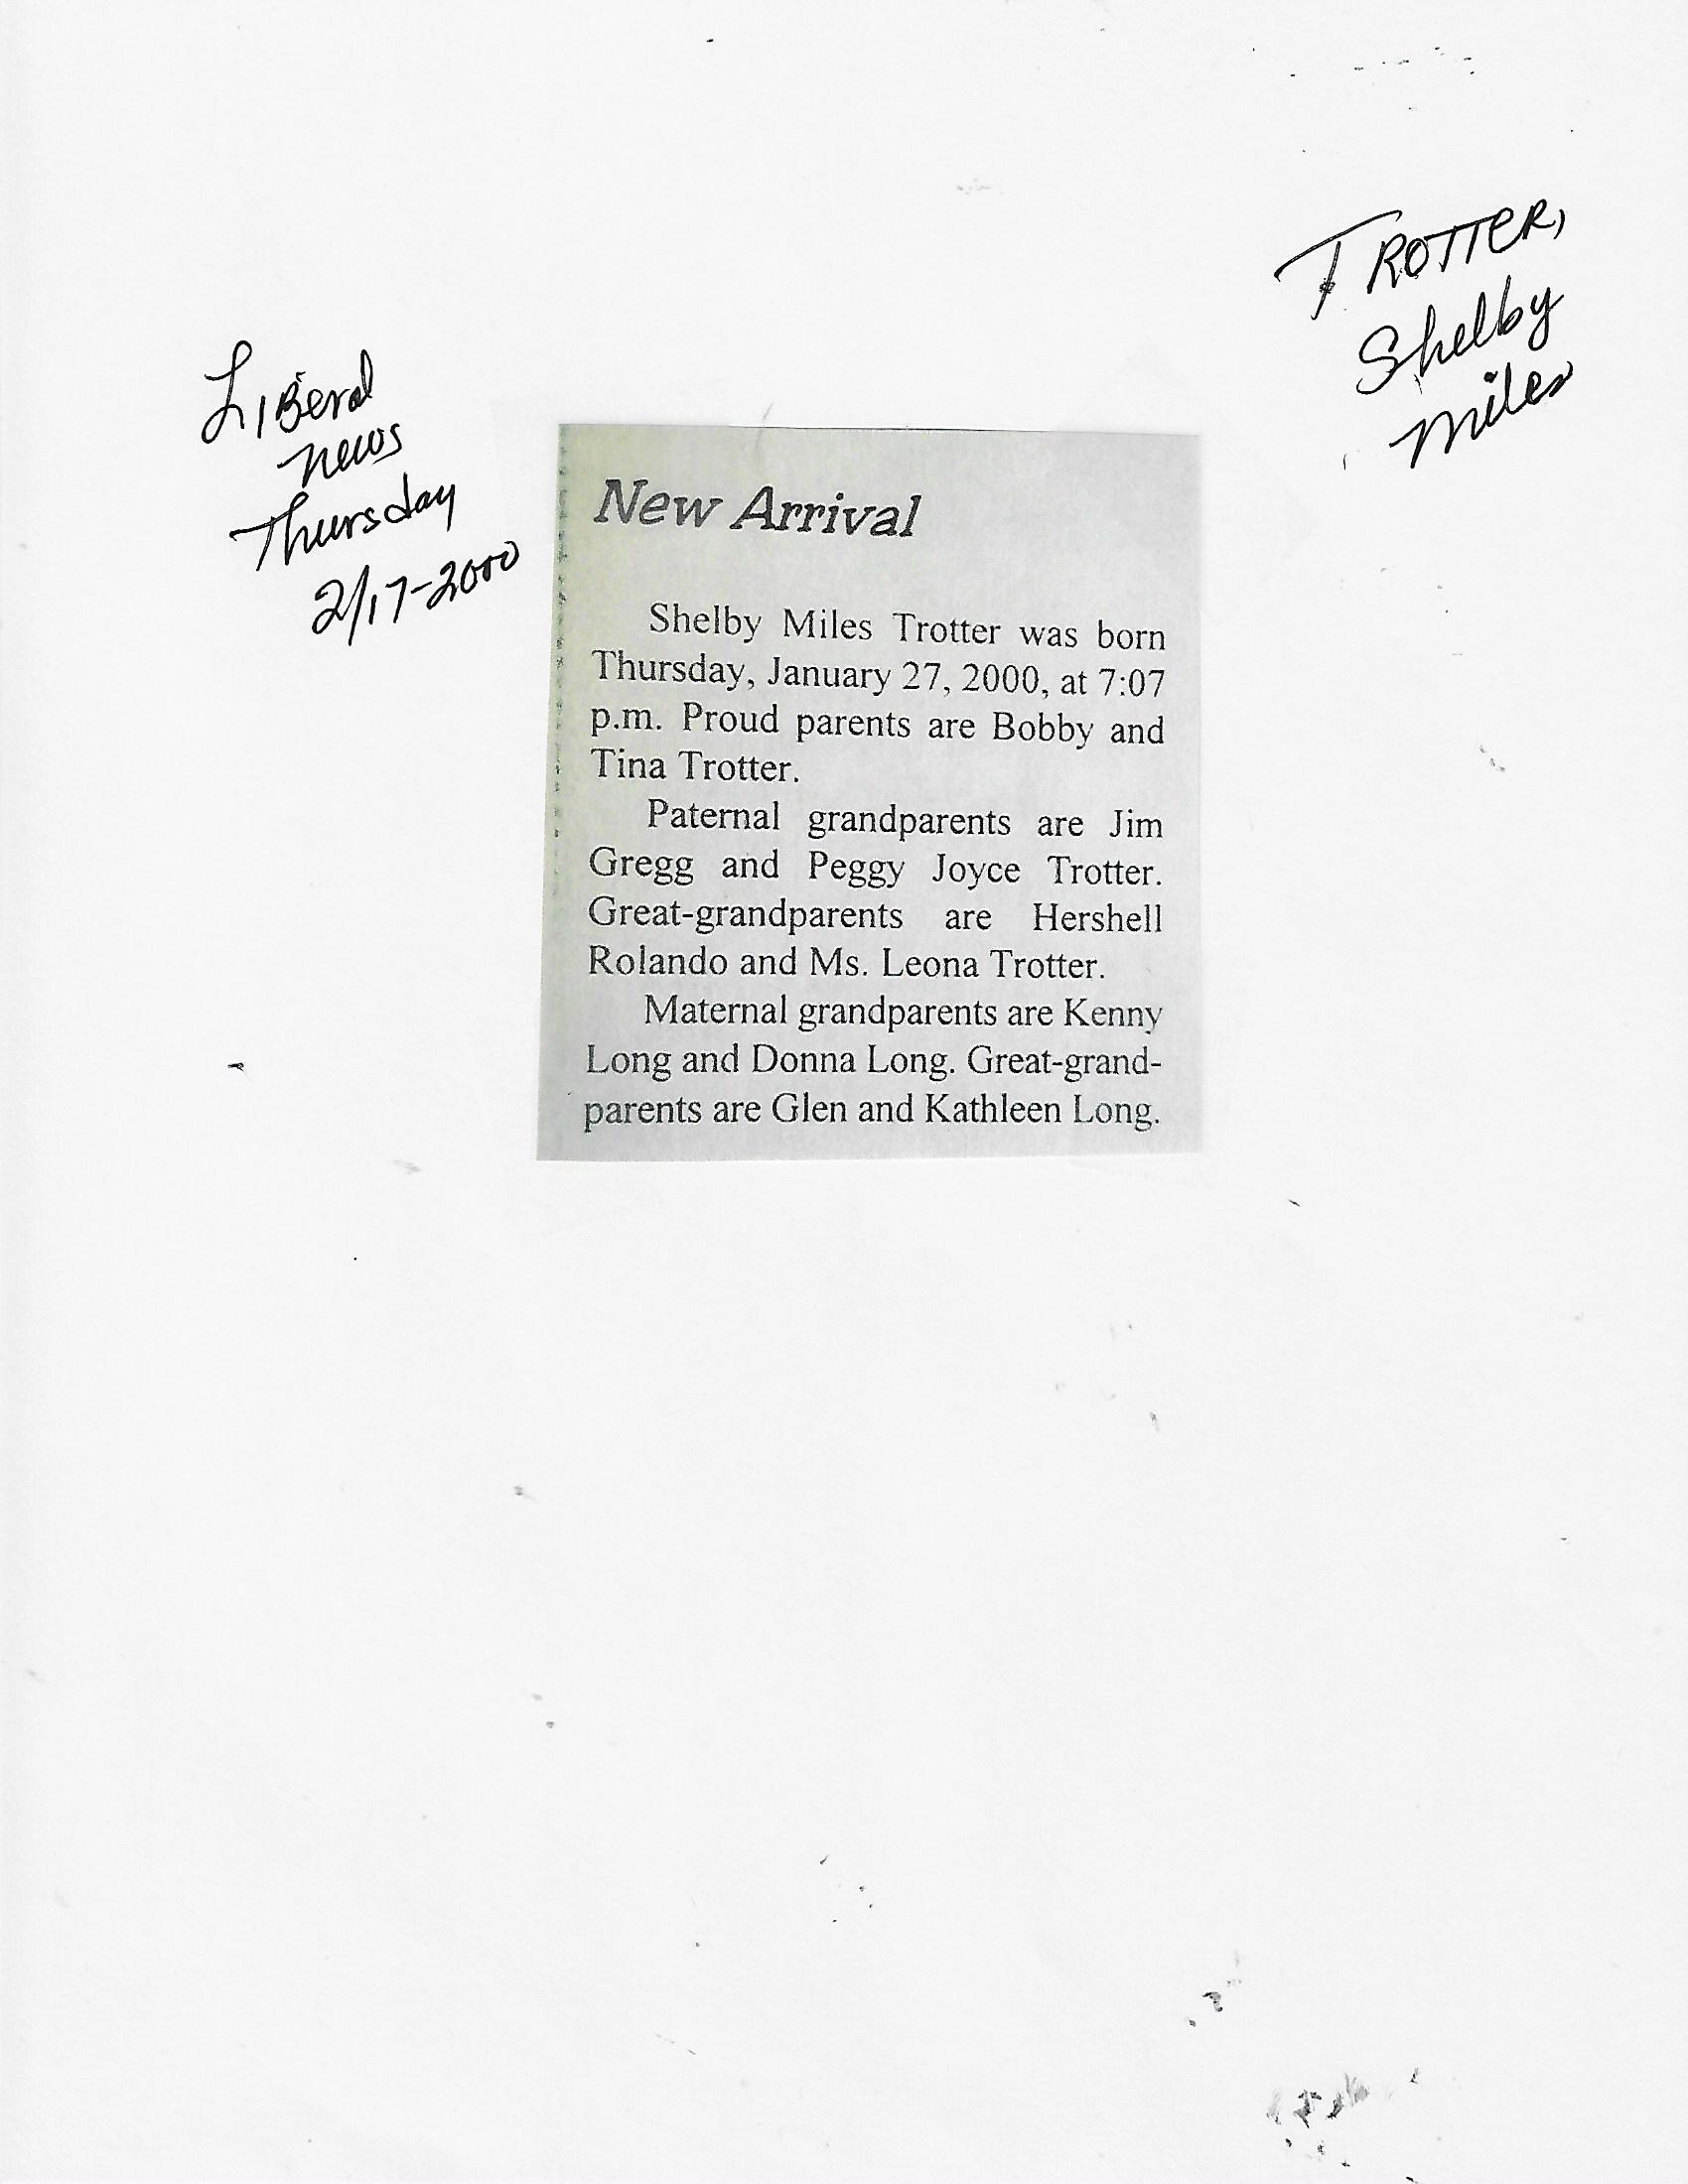 TROTTER,
Shelby
Miles
Liberal
News
Thursday
2/17-2000
New Arrival
Shelby Miles Trotter was born
Thursday, January 27, 2000, at 7:07
p.m. Proud parents are Bobby and
Tina Trotter.
Paternal grandparents are Jim
Gregg and Peggy Joyce Trotter.
Great-grandparents are Hershell
Rolando and Ms. Leona Trotter.
Maternal grandparents are Kenny
Long and Donna Long. Great-grand-
parents are Glen and Kathleen Long.